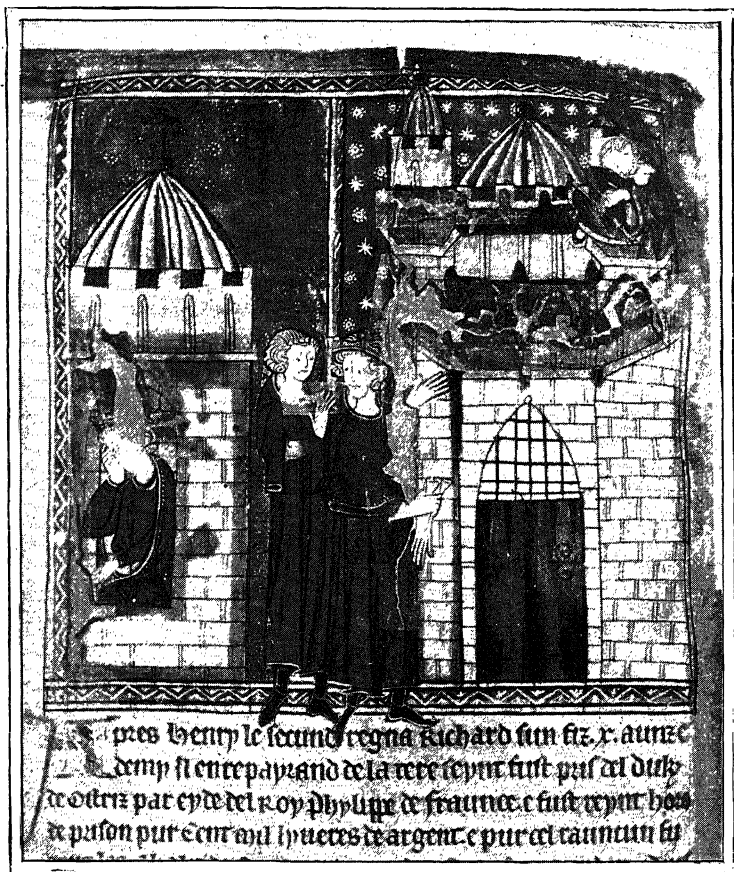 pres Henry le secund regna Richard sun fiz .x. aunz e
demy si en repayrand de la tere seynt fust pris del duk
de Ostriz par eyde del Roy Phylippe de Fraunce. e fust reynt hors
de prison pur Cent mil lyueres de argent. e pur cel raunsun fu